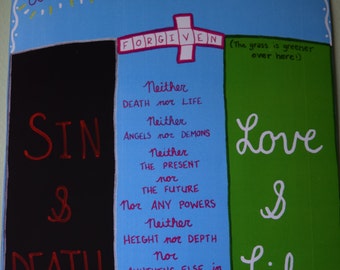 FORGIVEN
(The grass is greener
over here!)
SIN
&
DEATH
Neither
DEATH nor LIFE
Neither
ANGELS nor DEMONS
Neither
THE PRESENT
nor
THE FUTURE
Nor ANY POWERS
Neither
HEIGHT nor DEPTH
Nor
ANYTHING ELSE in
Love
&
Life